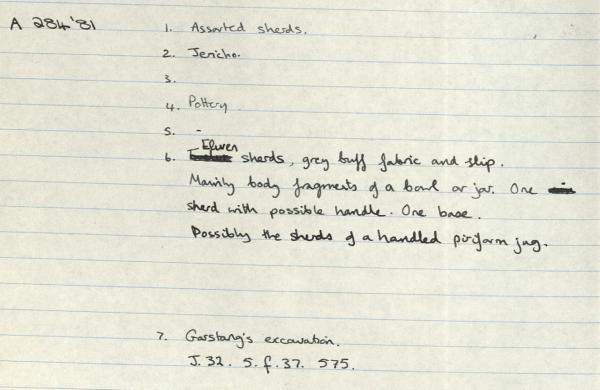 A 284'81
1. Assorted sherds.
2. Jericho.
3.
4. Pottery
5. -
Eleven
6. sherds, grey buff fabric and slip.
Mainly body fragments of a bowl or jar. One
sherd with possible handle. One base.
Possibly the sherds of a handled piriform jug.
7. Garstang's excavation.
J. 32. 5. f. 37. 575.